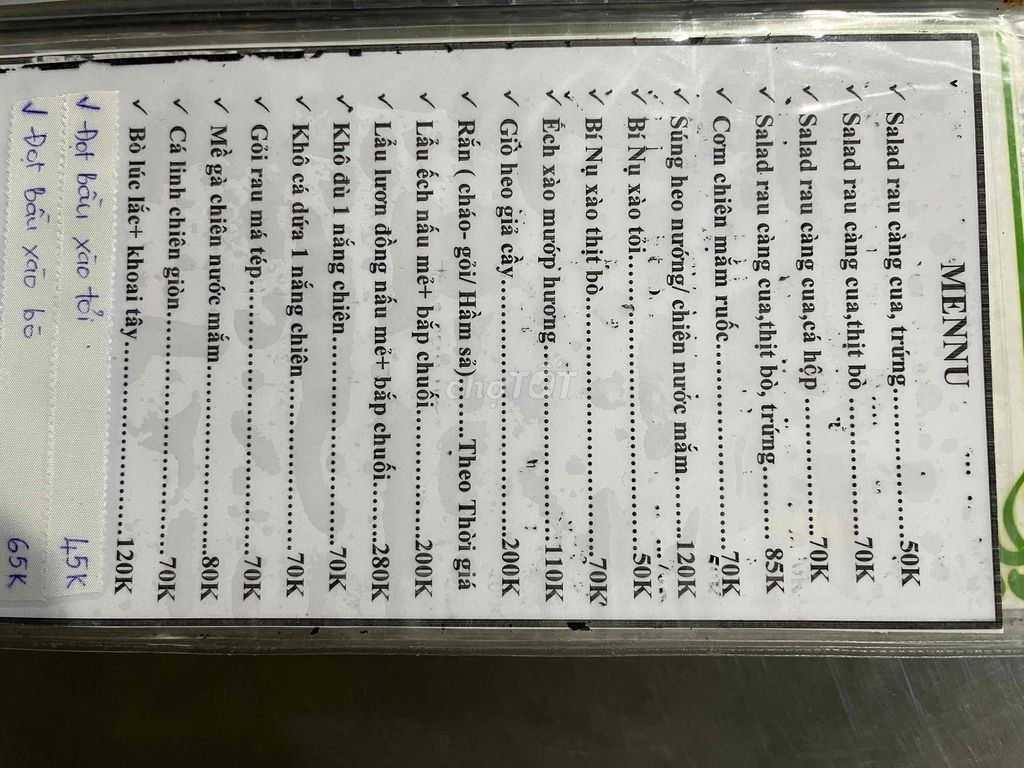 MENNU
✓ Salad rau càng cua, trứng..........50K
✓ Salad rau càng cua,thịt bò..........70K
✓ Salad rau càng cua,cá hộp..........70K
✓ Salad rau càng cua,thịt bò, trứng...... 85K
✓ Cơm chiên mắm ruốc..........70K
✓ Súng heo nướng/ chiên nước mắm......120K
✓ Bí Nụ xào tỏi..........50K
✓ Bí Nụ xào thịt bò..........70K
✓ Ếch xào mướp hương..........110K
✓ Giò heo giả cầy..........200K
✓ Rắn ( cháo- gỏi/ Hầm sả)......Theo Thời giá
✓ Lẩu ếch nấu mẻ+ bắp chuối..........200K
✓ Lẩu lươn đồng nấu mẻ+ bắp chuối....280K
✓ Khô đù 1 nắng chiên..........70K
✓ Khô cá dứa 1 nắng chiên..........70K
✓ Gỏi rau má tép..........70K
✓ Mề gà chiên nước mắm..........80K
✓ Cá linh chiên giòn..........70K
✓ Bò lúc lắc+ khoai tây..........120K
✓ Đọt bầu xào tỏi 45K
✓ Đọt bầu xào bò 65K
chợTỐT